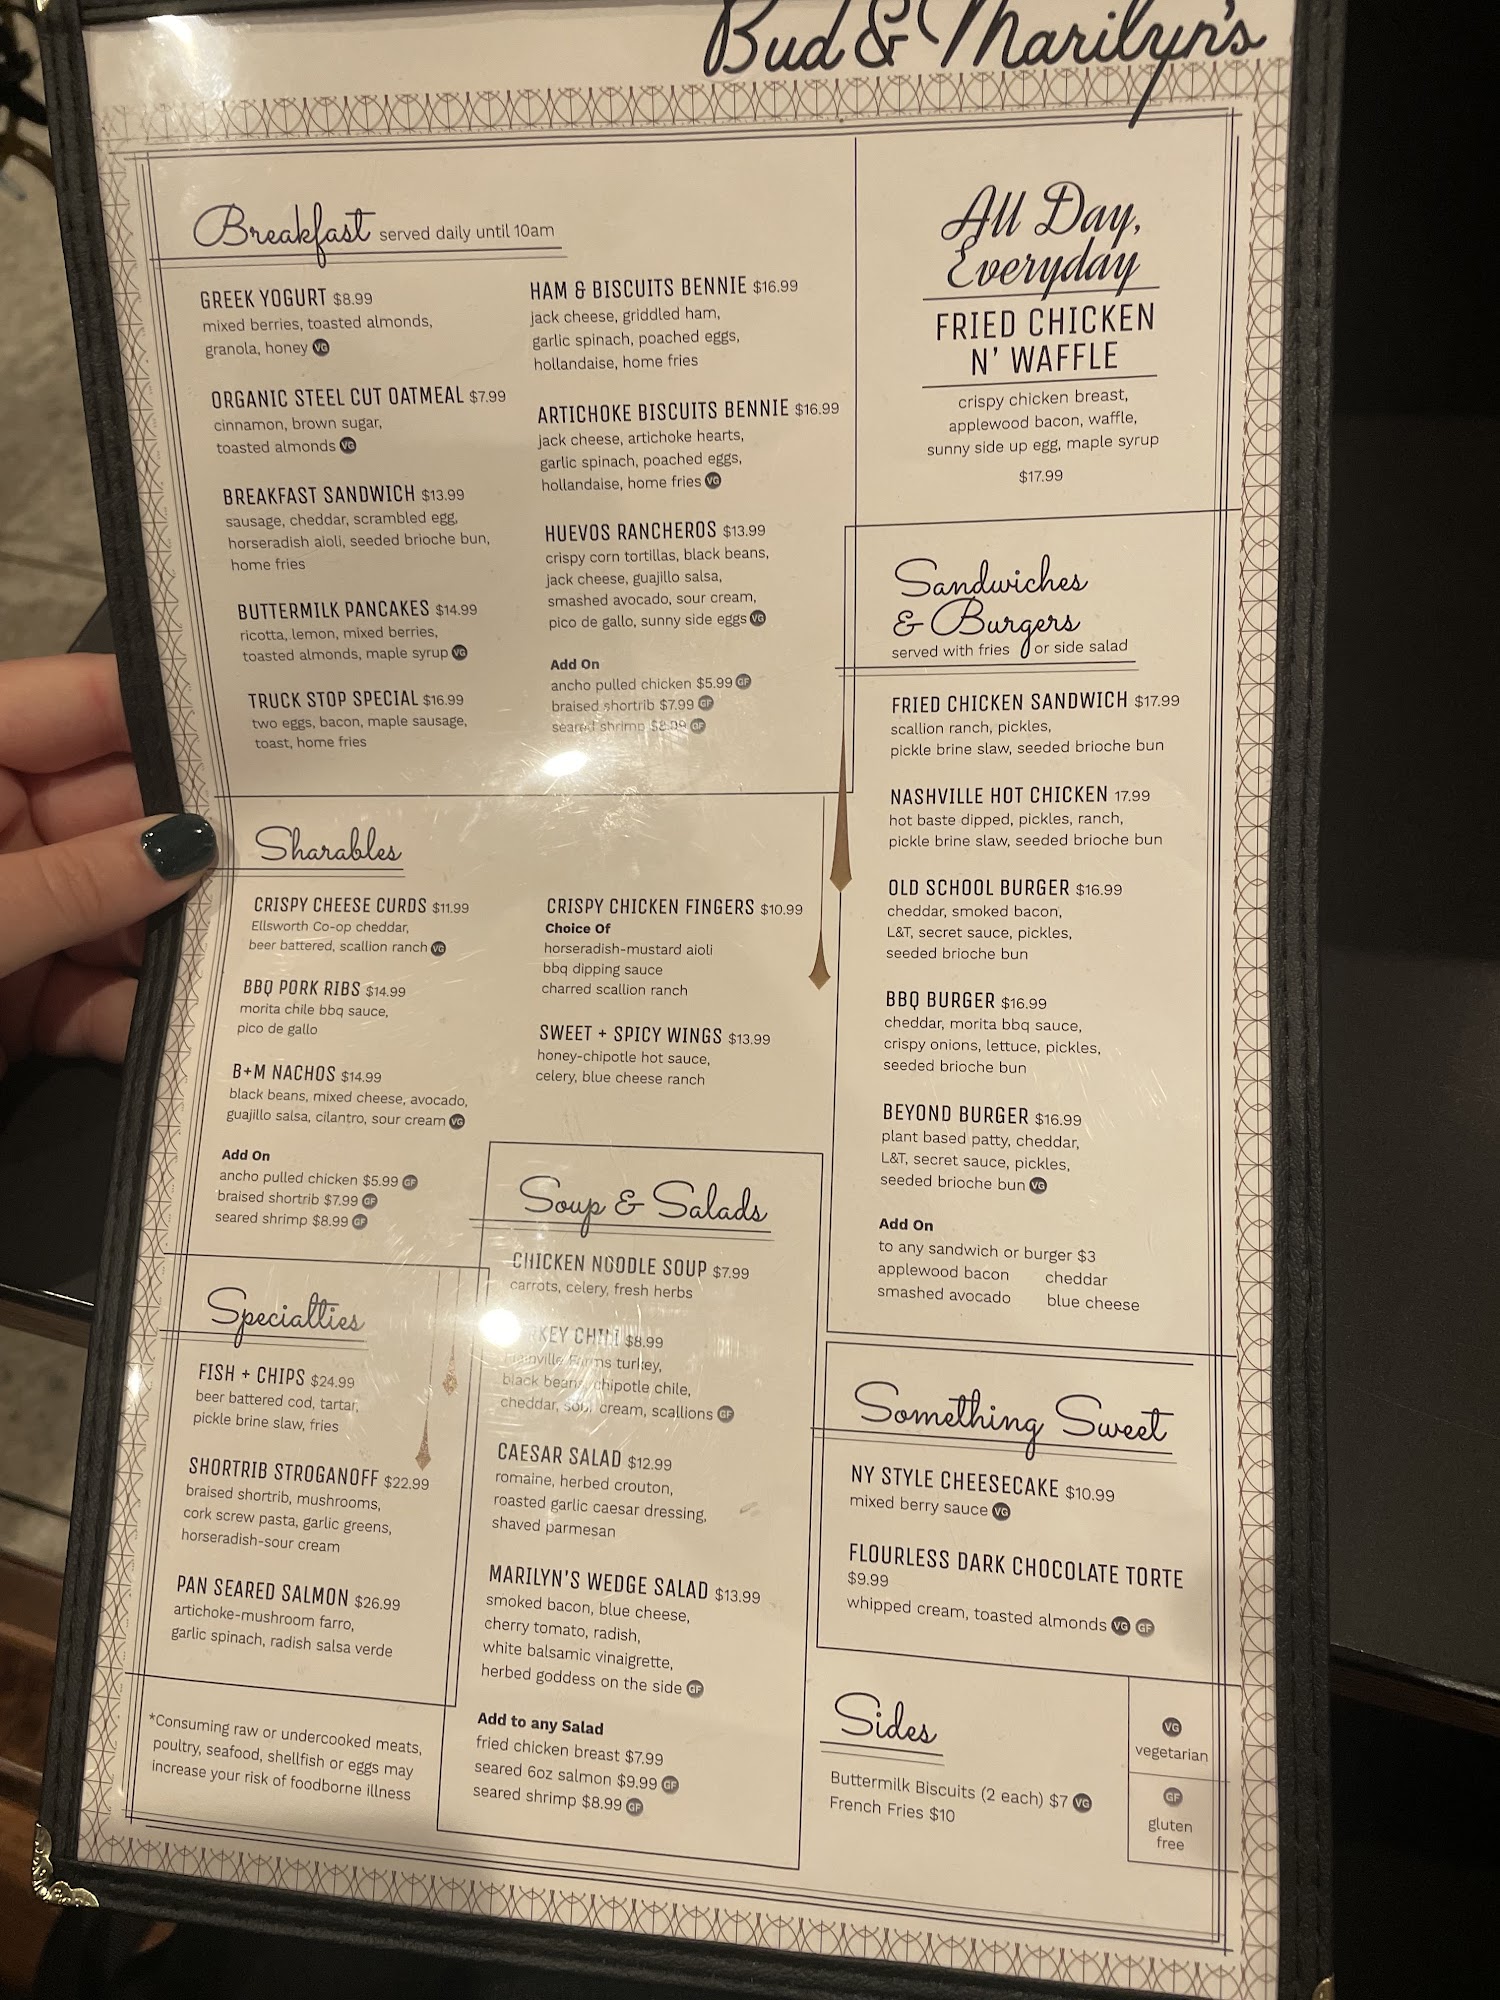 Bud & Marilyn's
Breakfast served daily until 10am
GREEK YOGURT $8.99
mixed berries, toasted almonds,
granola, honey VG
ORGANIC STEEL CUT OATMEAL $7.99
cinnamon, brown sugar,
toasted almonds VG
BREAKFAST SANDWICH $13.99
sausage, cheddar, scrambled egg,
horseradish aioli, seeded brioche bun,
home fries
BUTTERMILK PANCAKES $14.99
ricotta, lemon, mixed berries,
toasted almonds, maple syrup VG
TRUCK STOP SPECIAL $16.99
two eggs, bacon, maple sausage,
toast, home fries
HAM & BISCUITS BENNIE $16.99
jack cheese, griddled ham,
garlic spinach, poached eggs,
hollandaise, home fries
ARTICHOKE BISCUITS BENNIE $16.99
jack cheese, artichoke hearts,
garlic spinach, poached eggs,
hollandaise, home fries VG
HUEVOS RANCHEROS $13.99
crispy corn tortillas, black beans,
jack cheese, guajillo salsa,
smashed avocado, sour cream,
pico de gallo, sunny side eggs VG
Add On
ancho pulled chicken $5.99 GF
braised shortrib $7.99 GF
seared shrimp $8.99 GF
All Day,
Everyday
FRIED CHICKEN
N' WAFFLE
crispy chicken breast,
applewood bacon, waffle,
sunny side up egg, maple syrup
$17.99
Sandwiches
& Burgers
served with fries or side salad
FRIED CHICKEN SANDWICH $17.99
scallion ranch, pickles,
pickle brine slaw, seeded brioche bun
NASHVILLE HOT CHICKEN 17.99
hot baste dipped, pickles, ranch,
pickle brine slaw, seeded brioche bun
OLD SCHOOL BURGER $16.99
cheddar, smoked bacon,
L&T, secret sauce, pickles,
seeded brioche bun
BBQ BURGER $16.99
cheddar, morita bbq sauce,
crispy onions, lettuce, pickles,
seeded brioche bun
BEYOND BURGER $16.99
plant based patty, cheddar,
L&T, secret sauce, pickles,
seeded brioche bun VG
Add On
to any sandwich or burger $3
applewood bacon cheddar
smashed avocado blue cheese
Sharables
CRISPY CHEESE CURDS $11.99
Ellsworth Co-op cheddar,
beer battered, scallion ranch VG
BBQ PORK RIBS $14.99
morita chile bbq sauce,
pico de gallo
B+M NACHOS $14.99
black beans, mixed cheese, avocado,
guajillo salsa, cilantro, sour cream VG
Add On
ancho pulled chicken $5.99 GF
braised shortrib $7.99 GF
seared shrimp $8.99 GF
CRISPY CHICKEN FINGERS $10.99
Choice Of
horseradish-mustard aioli
bbq dipping sauce
charred scallion ranch
SWEET + SPICY WINGS $13.99
honey-chipotle hot sauce,
celery, blue cheese ranch
Specialties
FISH + CHIPS $24.99
beer battered cod, tartar,
pickle brine slaw, fries
SHORTRIB STROGANOFF $22.99
braised shortrib, mushrooms,
cork screw pasta, garlic greens,
horseradish-sour cream
PAN SEARED SALMON $26.99
artichoke-mushroom farro,
garlic spinach, radish salsa verde
*Consuming raw or undercooked meats,
poultry, seafood, shellfish or eggs may
increase your risk of foodborne illness
Soup & Salads
CHICKEN NOODLE SOUP $7.99
carrots, celery, fresh herbs
CHILI $8.99
turkey,
black beans, chipotle chile,
cheddar, sour cream, scallions GF
CAESAR SALAD $12.99
romaine, herbed crouton,
roasted garlic caesar dressing,
shaved parmesan
MARILYN'S WEDGE SALAD $13.99
smoked bacon, blue cheese,
cherry tomato, radish,
white balsamic vinaigrette,
herbed goddess on the side GF
Add to any Salad
fried chicken breast $7.99
seared 6oz salmon $9.99 GF
seared shrimp $8.99 GF
Something Sweet
NY STYLE CHEESECAKE $10.99
mixed berry sauce VG
FLOURLESS DARK CHOCOLATE TORTE
$9.99
whipped cream, toasted almonds VG GF
Sides
Buttermilk Biscuits (2 each) $7 VG
French Fries $10
VG
vegetarian
GF
gluten
free